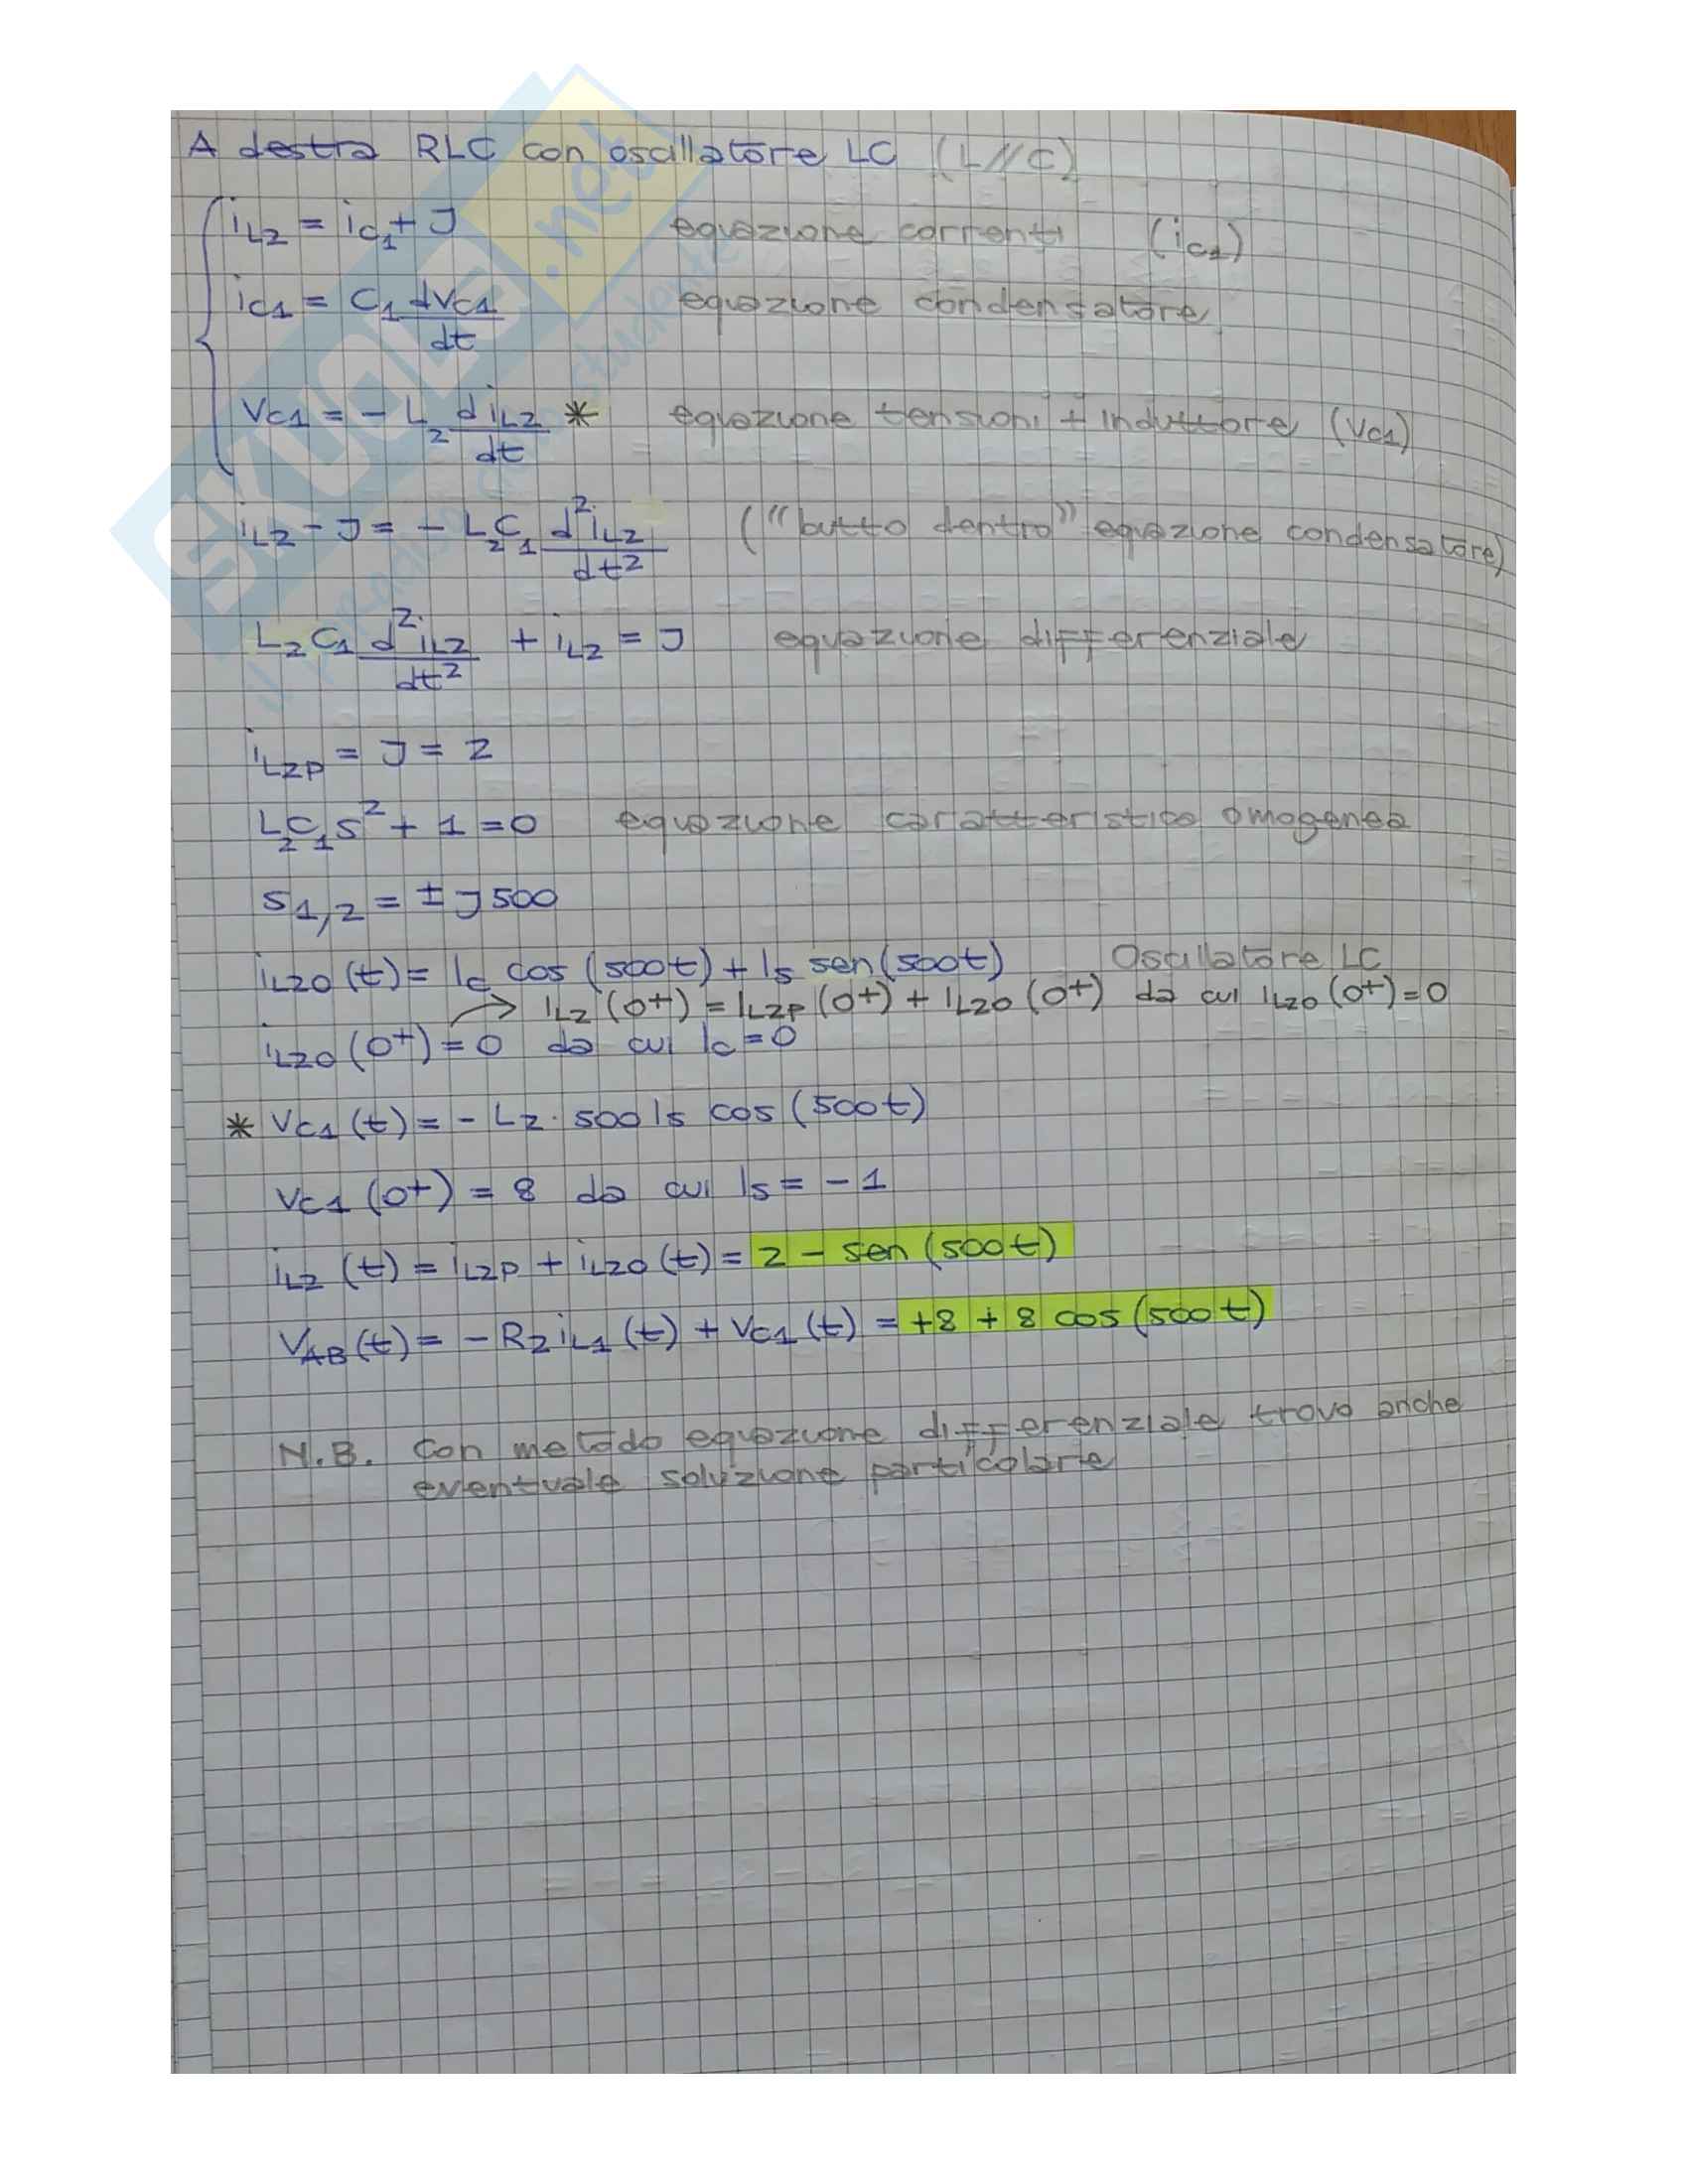 A destra RLC con oscillatore LC (L//C)
iL2 = iC1 + J equazione correnti (iC1)
iC1 = C1 dVC1/dt equazione condensatore
VC1 = - L2 diL2/dt * equazione tensioni + induttore (VC1)
iL2 - J = - L2C1 d²iL2/dt² ("butto dentro" equazione condensatore)
L2C1 d²iL2/dt² + iL2 = J equazione differenziale
iL2P = J = 2
L2C1s² + 1 = 0 equazione caratteristica omogenea
S1,2 = ± J500
iL2O(t) = Ic cos(500t) + Is sen(500t) Oscillatore LC
→ iL2(0+) = iL2P(0+) + iL2O(0+) da cui iL2O(0+) = 0
iL2O(0+) = 0 da cui Ic = 0
* VC1(t) = - L2 · 500 Is cos(500t)
VC1(0+) = 8 da cui Is = - 1
iL2(t) = iL2P + iL2O(t) = 2 - sen(500t)
VAB(t) = - R2 iL1(t) + VC1(t) = +8 + 8 cos(500t)
N.B. Con metodo equazione differenziale trovo anche
eventuale soluzione particolare
SKUOLA.net